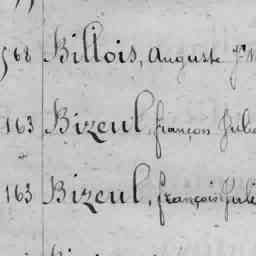 568 Billois, Auguste Jn M
163 Bizeul, françois Julie
163 Bizeul, françois Juli